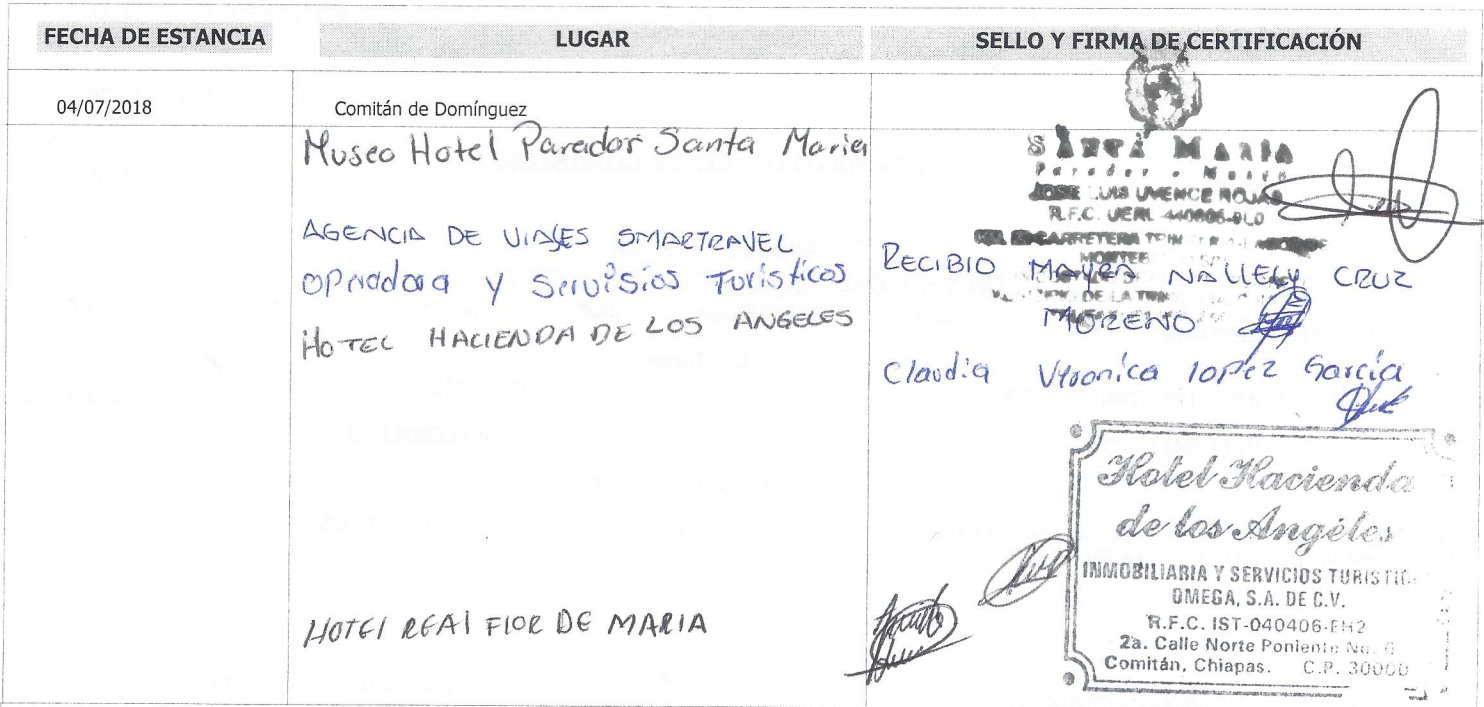 FECHA DE ESTANCIA
LUGAR
SELLO Y FIRMA DE CERTIFICACIÓN
04/07/2018
Comitán de Domínguez
Museo Hotel Parador Santa Maria
AGENCIA DE VIAJES SMARTRAVEL
Servisios Turisticos
HOTEL HACIENDA DE LOS ANGELES
HOTEl REAl FlOR DE MARIA
SANTA MARIA
Parador - Museo
JOSE LUIS
R.F.C.
CARRETERA
DE LA
RECIBIO MAYRA NALLELY CRUZ
MORENO
Claudia Veronica lopez Garcia
Hotel Hacienda
de los Angéles
INMOBILIARIA Y SERVICIOS TURISTIC
OMEGA, S.A. DE C.V.
R.F.C. IST-040406-EH2
2a. Calle Norte Poniente No. 6
Comitán, Chiapas. C.P. 30000